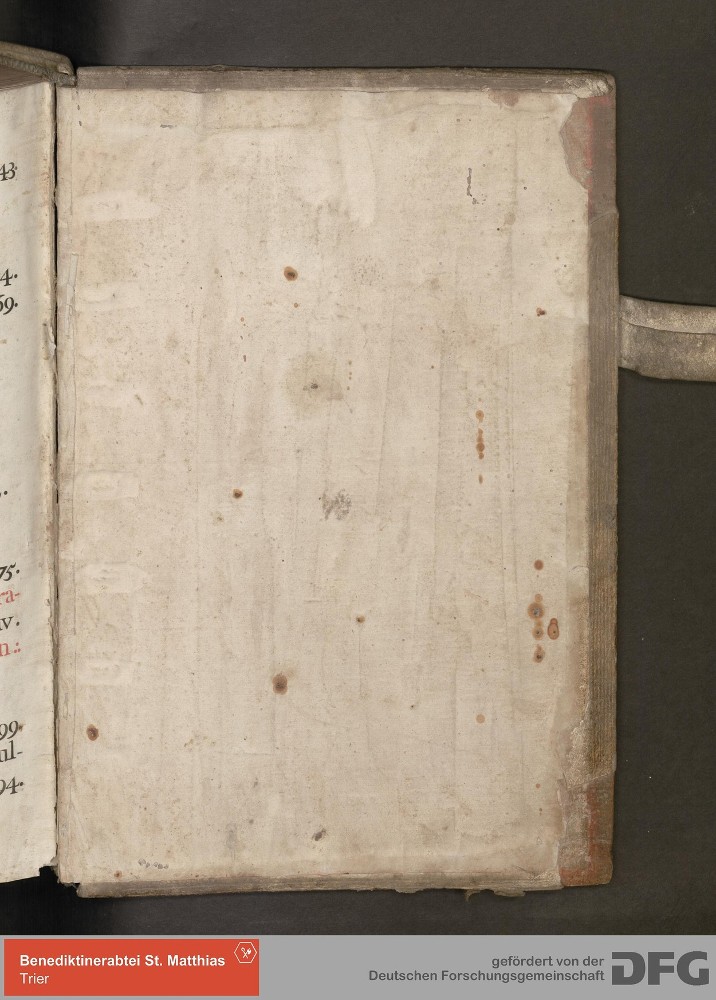 43
4.
69.
75.
ra-
iv.
n.:
99.
ul-
94.
Benediktinerabtei St. Matthias
Trier
gefördert von der
Deutschen Forschungsgemeinschaft
DFG